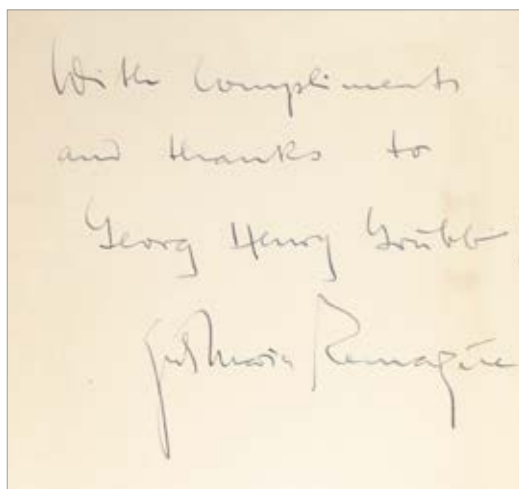 With compliments
and thanks to
Georg Henry Grubb
Erich Maria Remarque